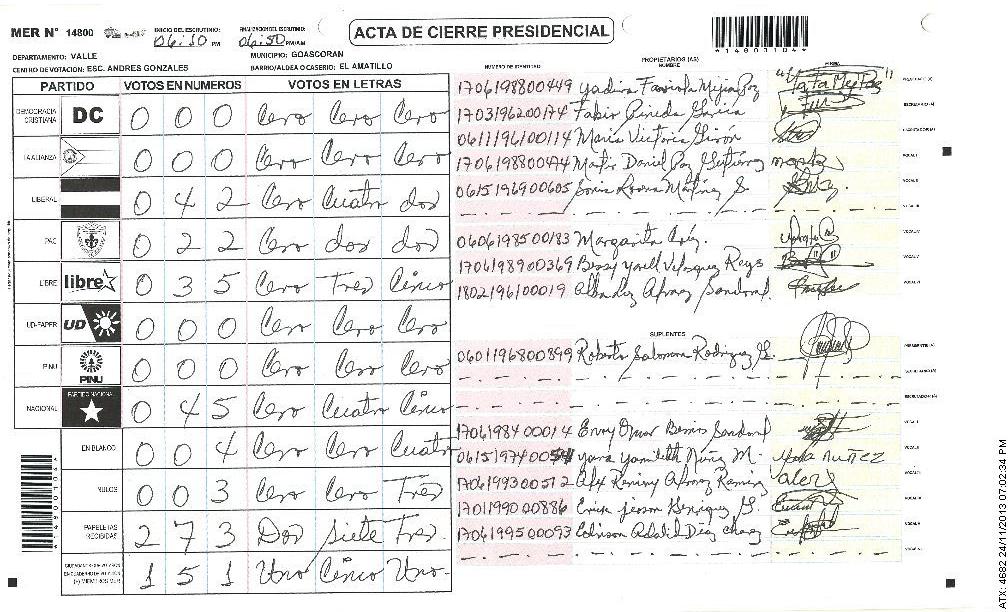 MER N° 14800 INICIO DEL ESCRUTINIO: 06:30 PM FINALIZACION DEL ESCRUTINIO: 06:50 PM/AM ACTA DE CIERRE PRESIDENCIAL *14800104*
DEPARTAMENTO: VALLE MUNICIPIO: GOASCORAN
CENTRO DE VOTACION: ESC. ANDRES GONZALES BARRIO/ALDEA O CASERIO: EL AMATILLO
PARTIDO VOTOS EN NUMEROS VOTOS EN LETRAS
DEMOCRACIA CRISTIANA DC 0 0 0 Cero Cero Cero
LA ALIANZA 0 0 0 Cero Cero Cero
LIBERAL 0 4 2 Cero Cuatro dos
PAC 0 2 2 Cero dos dos
LIBRE libre 0 3 5 Cero Tres Cinco
UD-FAPER UD 0 0 0 Cero Cero Cero
PINU PINU 0 0 0 Cero Cero Cero
NACIONAL PARTIDO NACIONAL 0 4 5 Cero Cuatro Cinco
EN BLANCO 0 0 4 Cero Cero Cuatro
NULOS 0 0 3 Cero Cero Tres
PAPELETAS RECIBIDAS 2 7 3 Dos Siete Tres
(+) MIEMBROS MER 1 5 1 Uno Cinco Uno
NUMERO DE IDENTIDAD PROPIETARIOS (AS) NOMBRE FIRMA
1706198800449 Yadira Mejia Paz
1703196200174 Fabio Pineda Garcia
0611196100114 Maria Victoria Girón
1706198800474 Martir Daniel Paz Gutierrez
0615196900605 Sonia Martinez S.
0606198500183 Margarita
1706198900369 Bessy Velasquez Reyes
1802196100019 Sandoval
SUPLENTES
0601196800899 Roberto Salomon Rodriguez G.
1706198400014 Omar Sandoval
0615197400054 Yamileth Nuñez M.
1706199300512 Alex Ramirez
1701199000886 Henriquez G.
1706199500093 Edinson Adalid Diaz
ATX: 4682 24/11/2013 07:02:34 PM